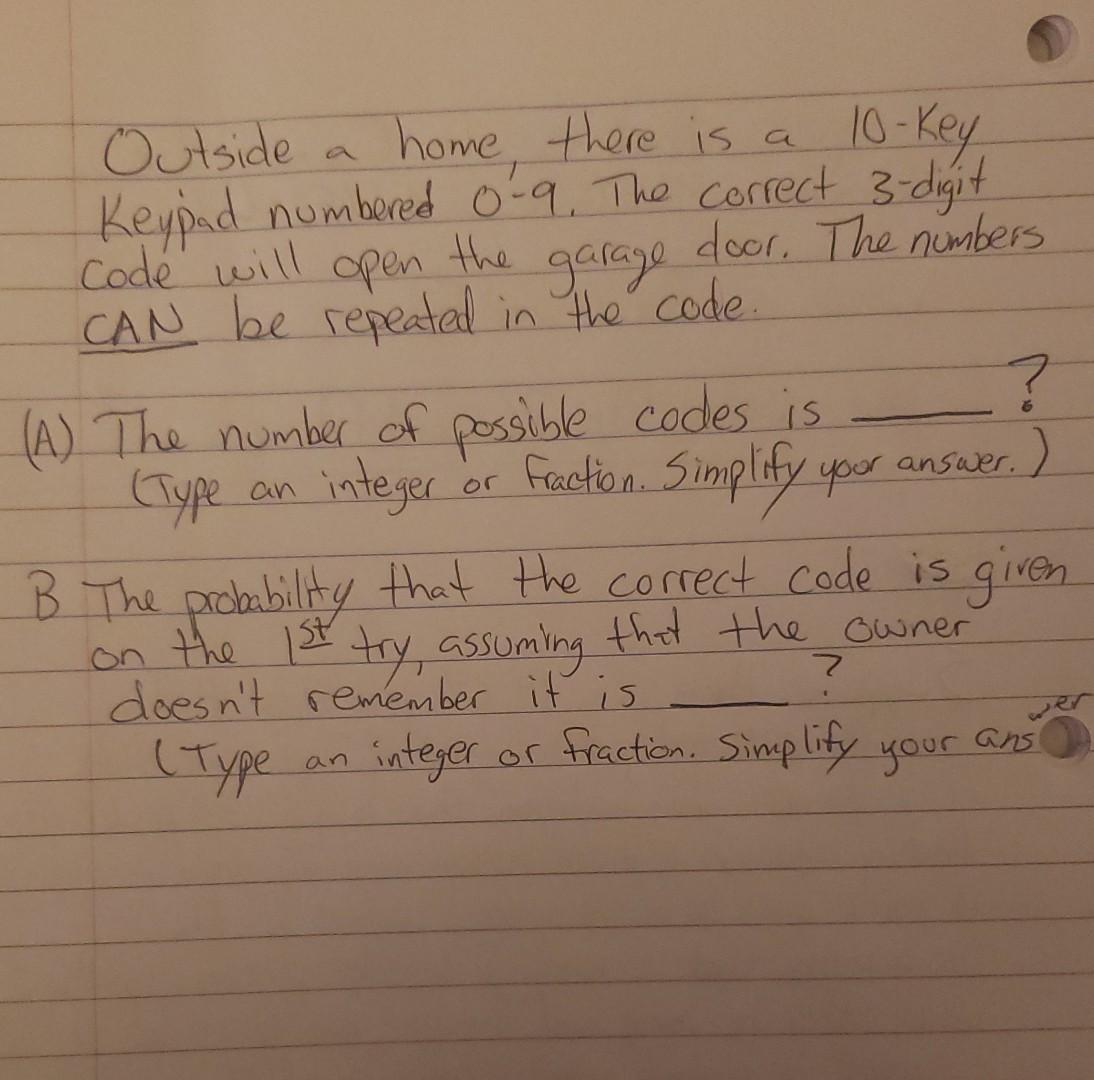 Outside a home, there is a 10-Key
Keypad numbered 0-9. The correct 3-digit
Code will open the garage door. The numbers
CAN be repeated in the code.
(A) The number of possible codes is ____ ?
(Type an integer or fraction. Simplify your answer.)
B The probability that the correct code is given
on the 1st try, assuming that the owner
doesn't remember it is ____ ?
(Type an integer or fraction. Simplify your answer